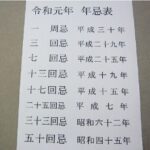 令和元年 年忌表
一周忌 平成三十年
三回忌 平成二十九年
七回忌 平成二十五年
十三回忌 平成十九年
十七回忌 平成十五年
二十五回忌 平成七年
三十三回忌 昭和六十二年
五十回忌 昭和四十五年